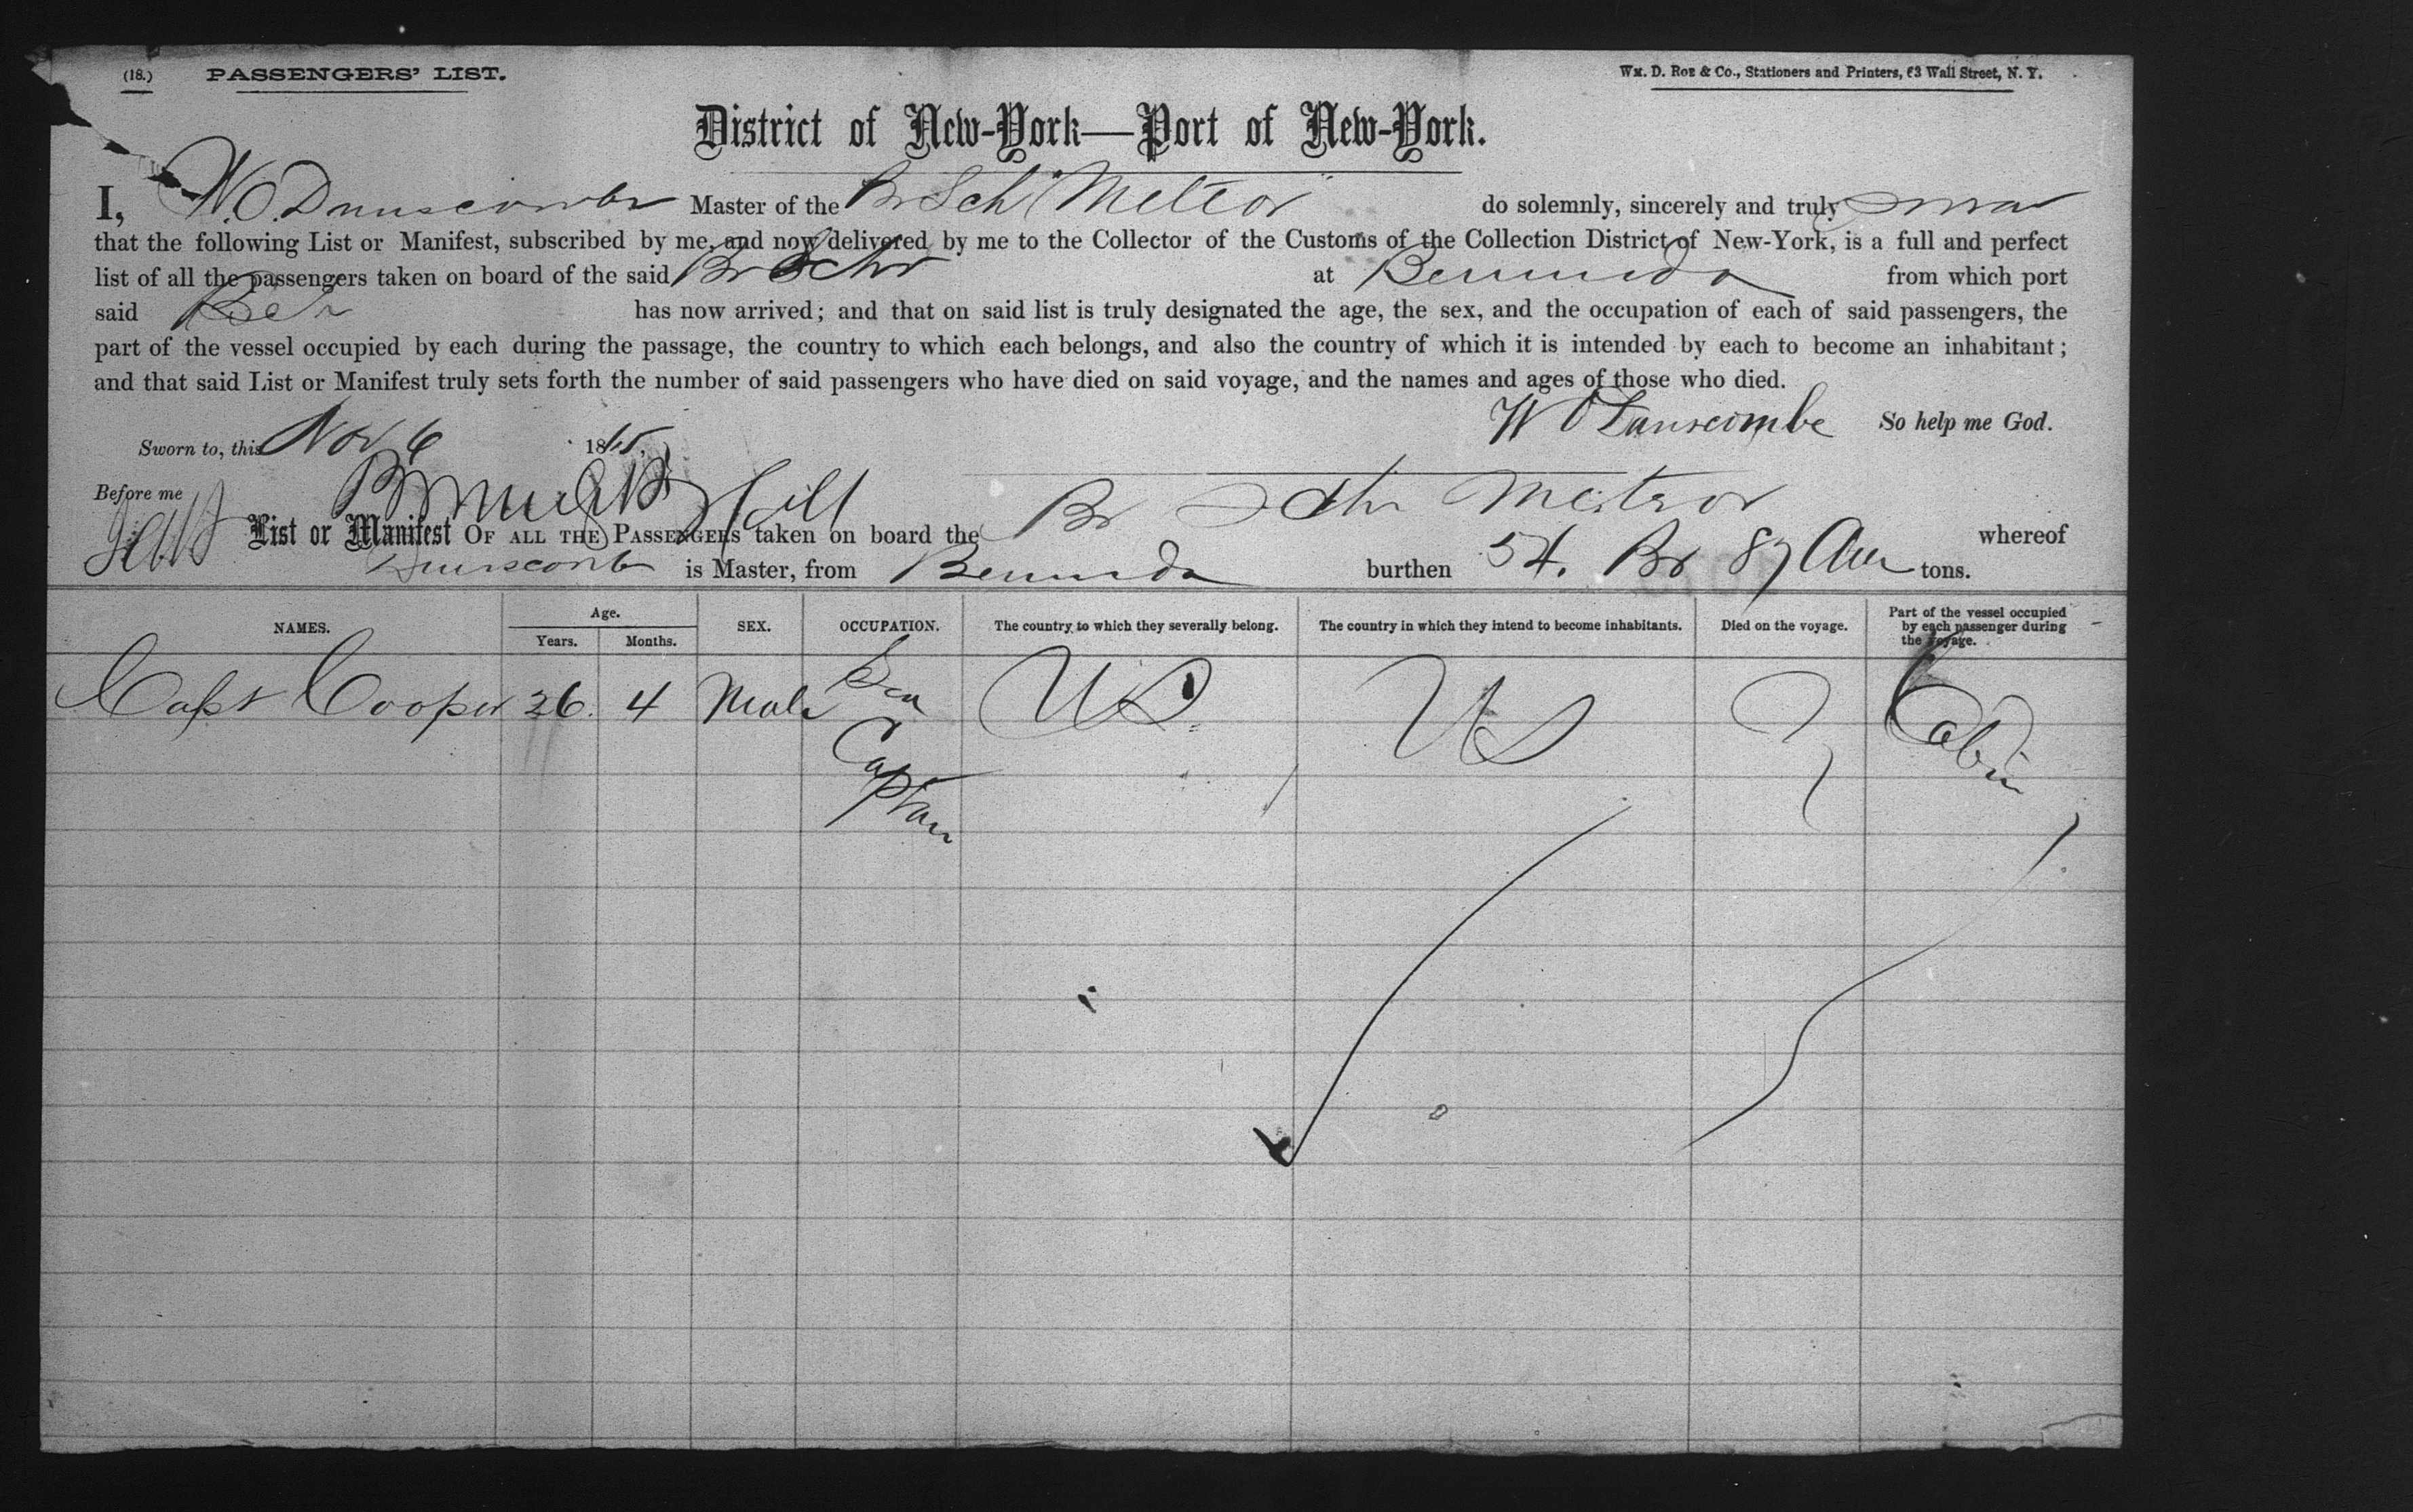 (18.) PASSENGERS' LIST. Wm. D. Roe & Co., Stationers and Printers, 63 Wall Street, N. Y.
District of New-York—Port of New-York.
I, W. O. Dunscombe Master of the Br Sch Meteor do solemnly, sincerely and truly swear
that the following List or Manifest, subscribed by me, and now delivered by me to the Collector of the Customs of the Collection District of New-York, is a full and perfect
list of all the passengers taken on board of the said Br Schr at Bermuda from which port
said has now arrived; and that on said list is truly designated the age, the sex, and the occupation of each of said passengers, the
part of the vessel occupied by each during the passage, the country to which each belongs, and also the country of which it is intended by each to become an inhabitant;
and that said List or Manifest truly sets forth the number of said passengers who have died on said voyage, and the names and ages of those who died.
W O Dunscombe So help me God.
Sworn to, this Nov 6 1865,
Before me Hill
List or Manifest OF ALL THE PASSENGERS taken on board the Br Schr Meteor whereof
Dunscomb is Master, from Bermuda burthen 54. Br 87 Am tons.
NAMES. Age. Years. Months. SEX. OCCUPATION. The country to which they severally belong. The country in which they intend to become inhabitants. Died on the voyage. Part of the vessel occupied by each passenger during the voyage.
Capt Cooper 26. 4 Male Sea Captain US US Cabin